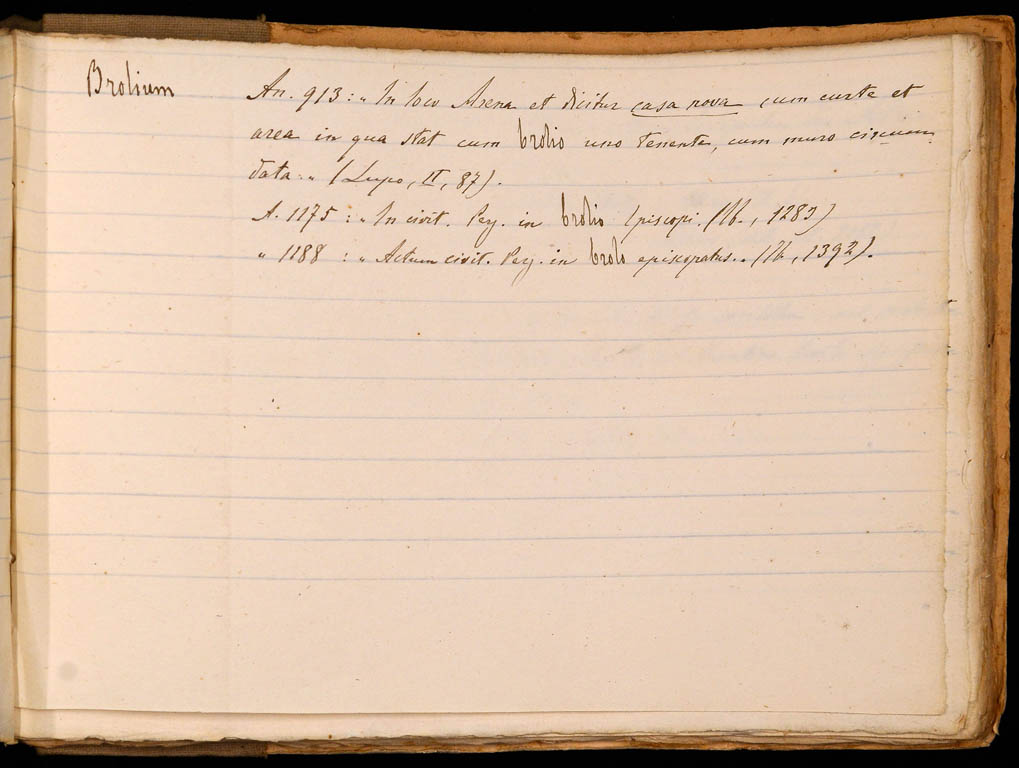 Brolium
An. 913: „ In loco Arena et dicitur casa nova cum curte et
area in qua stat cum brolio uno tenente, cum muro circum-
data: „ (Lupo, II, 87).
A. 1175 : „ In civit. Perg. in brolio Episcopi. (Ib., 1283)
„ 1188 : „ Actum civit. Perg. in brolo episcopatus.. (Ib, 1392).